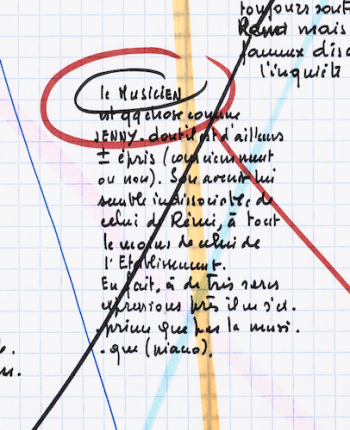 toujours
Rémi mais
fameux
l'inquiét
le MUSICIEN
est qq chose comme
JENNY. dont il est d'ailleurs
± épris (consciemment
ou non). Son avenir lui
semble indissociable de
celui de Rémi, à tout
le moins de celui de
l'Etablissement.
En fait, à de très rares
expressions près il ne s'ex.
.prime que par la musi.
.que (piano).